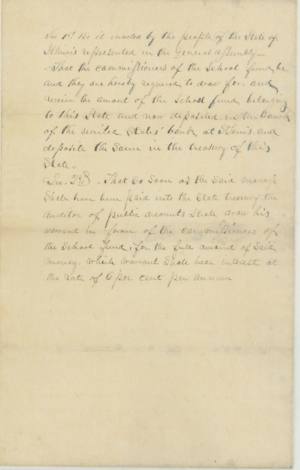 Sec 1st Be it enacted by the people of the State of
Illinois represented in the General Assembly—
That the commissioners of the School fund, be
and they are hereby required to draw for, and
receive the amount of the School fund belonging
to this State and now deposited in the Branch
of the United States' bank at St Louis and
deposite the same in the treasury of this
State.
Sec. 2d. That so soon as the said money
Shall have been paid into the State treasury the
auditor of public accounts Shall draw his
warrant in favor of the commissioners of
the School fund, for the full amount of said
money, which warrant Shall bear interest at
the rate of 6 per cent per annum